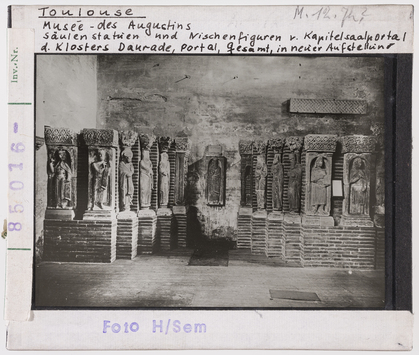 Toulouse
M. 12. Jh.?
Musée - des Augustins
Säulenstatuen und Nischenfiguren v. Kapitelsaalportal
d. Klosters Daurade, Portal, Gesamt, in neuer Aufstellung
Inv.-Nr.
85016-
Foto H/Sem